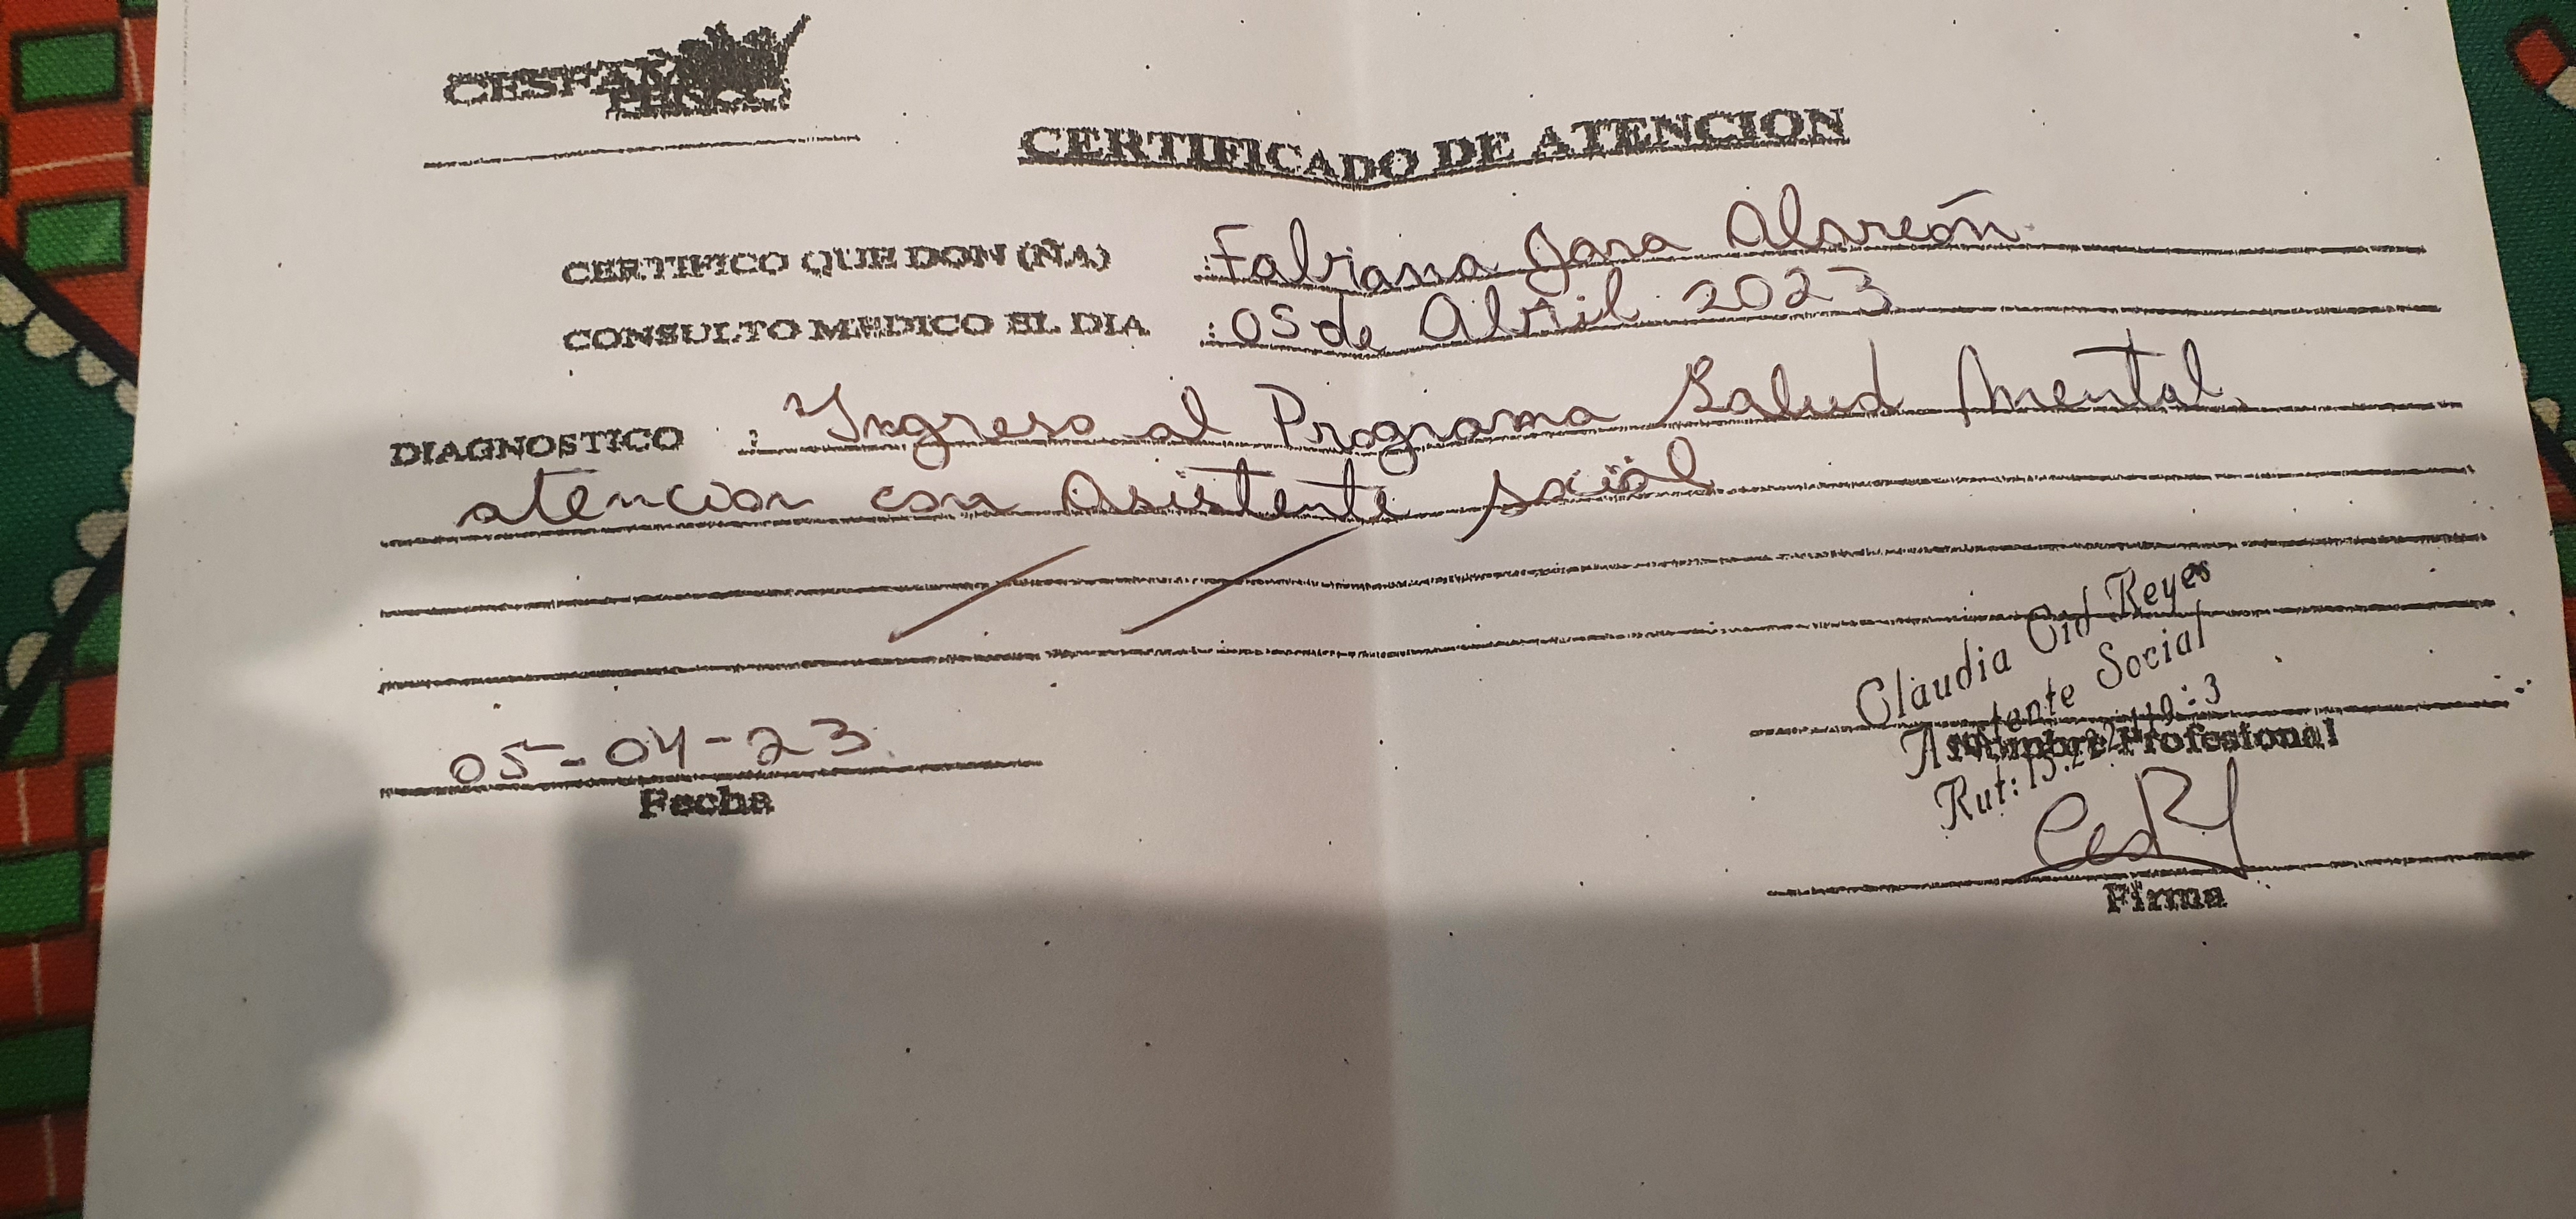 CESFAM
CERTIFICADO DE ATENCION
CERTIFICO QUE DON (ÑA) : Fabiana Jara Alarcón
CONSULTO MEDICO EL DIA : 05 de Abril 2023
DIAGNOSTICO : Ingreso al Programa Salud Mental.
atencion con Asistente social
Claudia Cid Reyes
Asistente Social
Nombre Profesional
Rut:
05-04-23
Fecha
Firma